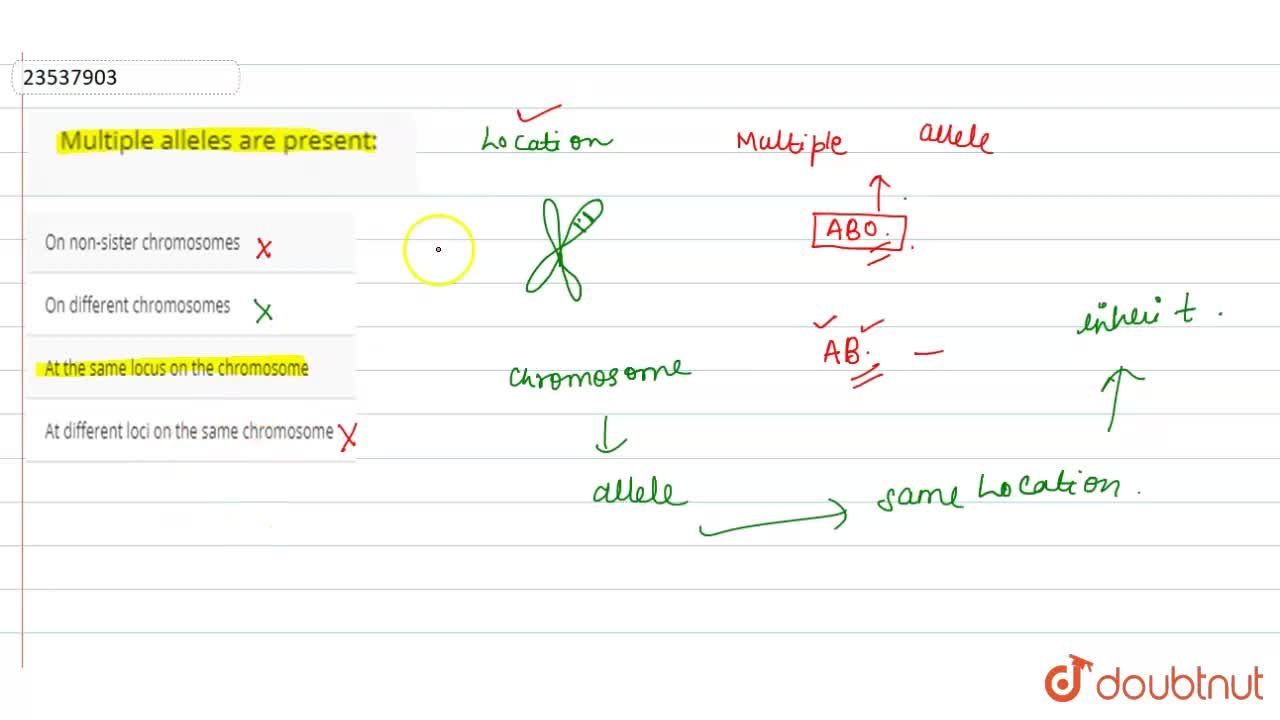 23537903
Multiple alleles are present:
On non-sister chromosomes X
On different chromosomes X
At the same locus on the chromosome
At different loci on the same chromosome X
Location
Multiple allele
ABO.
AB. —
inherit.
Chromosome
allele
same Location.
doubtnut